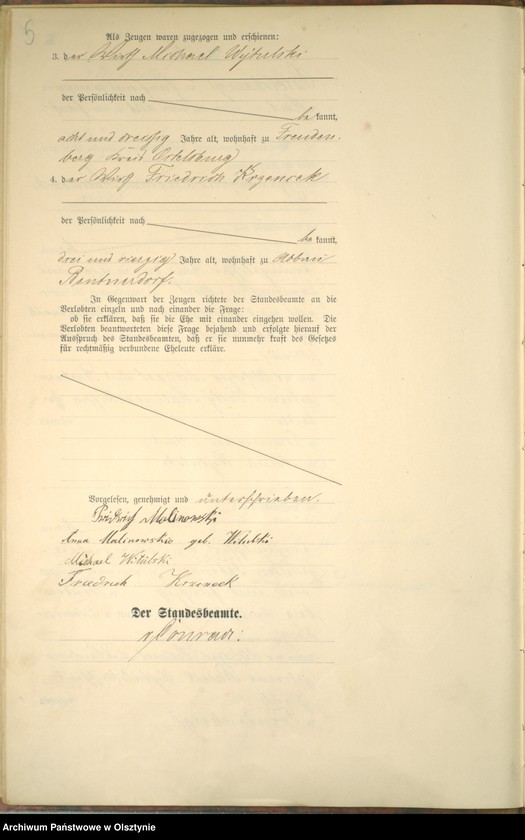 5
Als Zeugen waren zugezogen und erschienen:
3. der Wirth Michael Wytulski
der Persönlichkeit nach
bekannt,
acht und dreißig Jahre alt, wohnhaft zu Freuden-
berg Kreis Ortelsburg
4. der Wirth Friedrich Krzensek
der Persönlichkeit nach
bekannt,
drei und vierzig Jahre alt, wohnhaft zu Abbau
Rentnerdorf.
In Gegenwart der Zeugen richtete der Standesbeamte an die
Verlobten einzeln und nach einander die Frage:
ob sie erklären, daß sie die Ehe mit einander eingehen wollen. Die
Verlobten beantworteten diese Frage bejahend und erfolgte hierauf der
Ausspruch des Standesbeamten, daß er sie nunmehr kraft des Gesetzes
für rechtmäßig verbundene Eheleute erkläre.
Vorgelesen, genehmigt und unterschrieben.
Fridrich Malinowski
Anna Malinowski geb. Witulski
Michael Witulski
Friedrich Krzenseck
Der Standesbeamte.
Conrad.
Archiwum Państwowe w Olsztynie